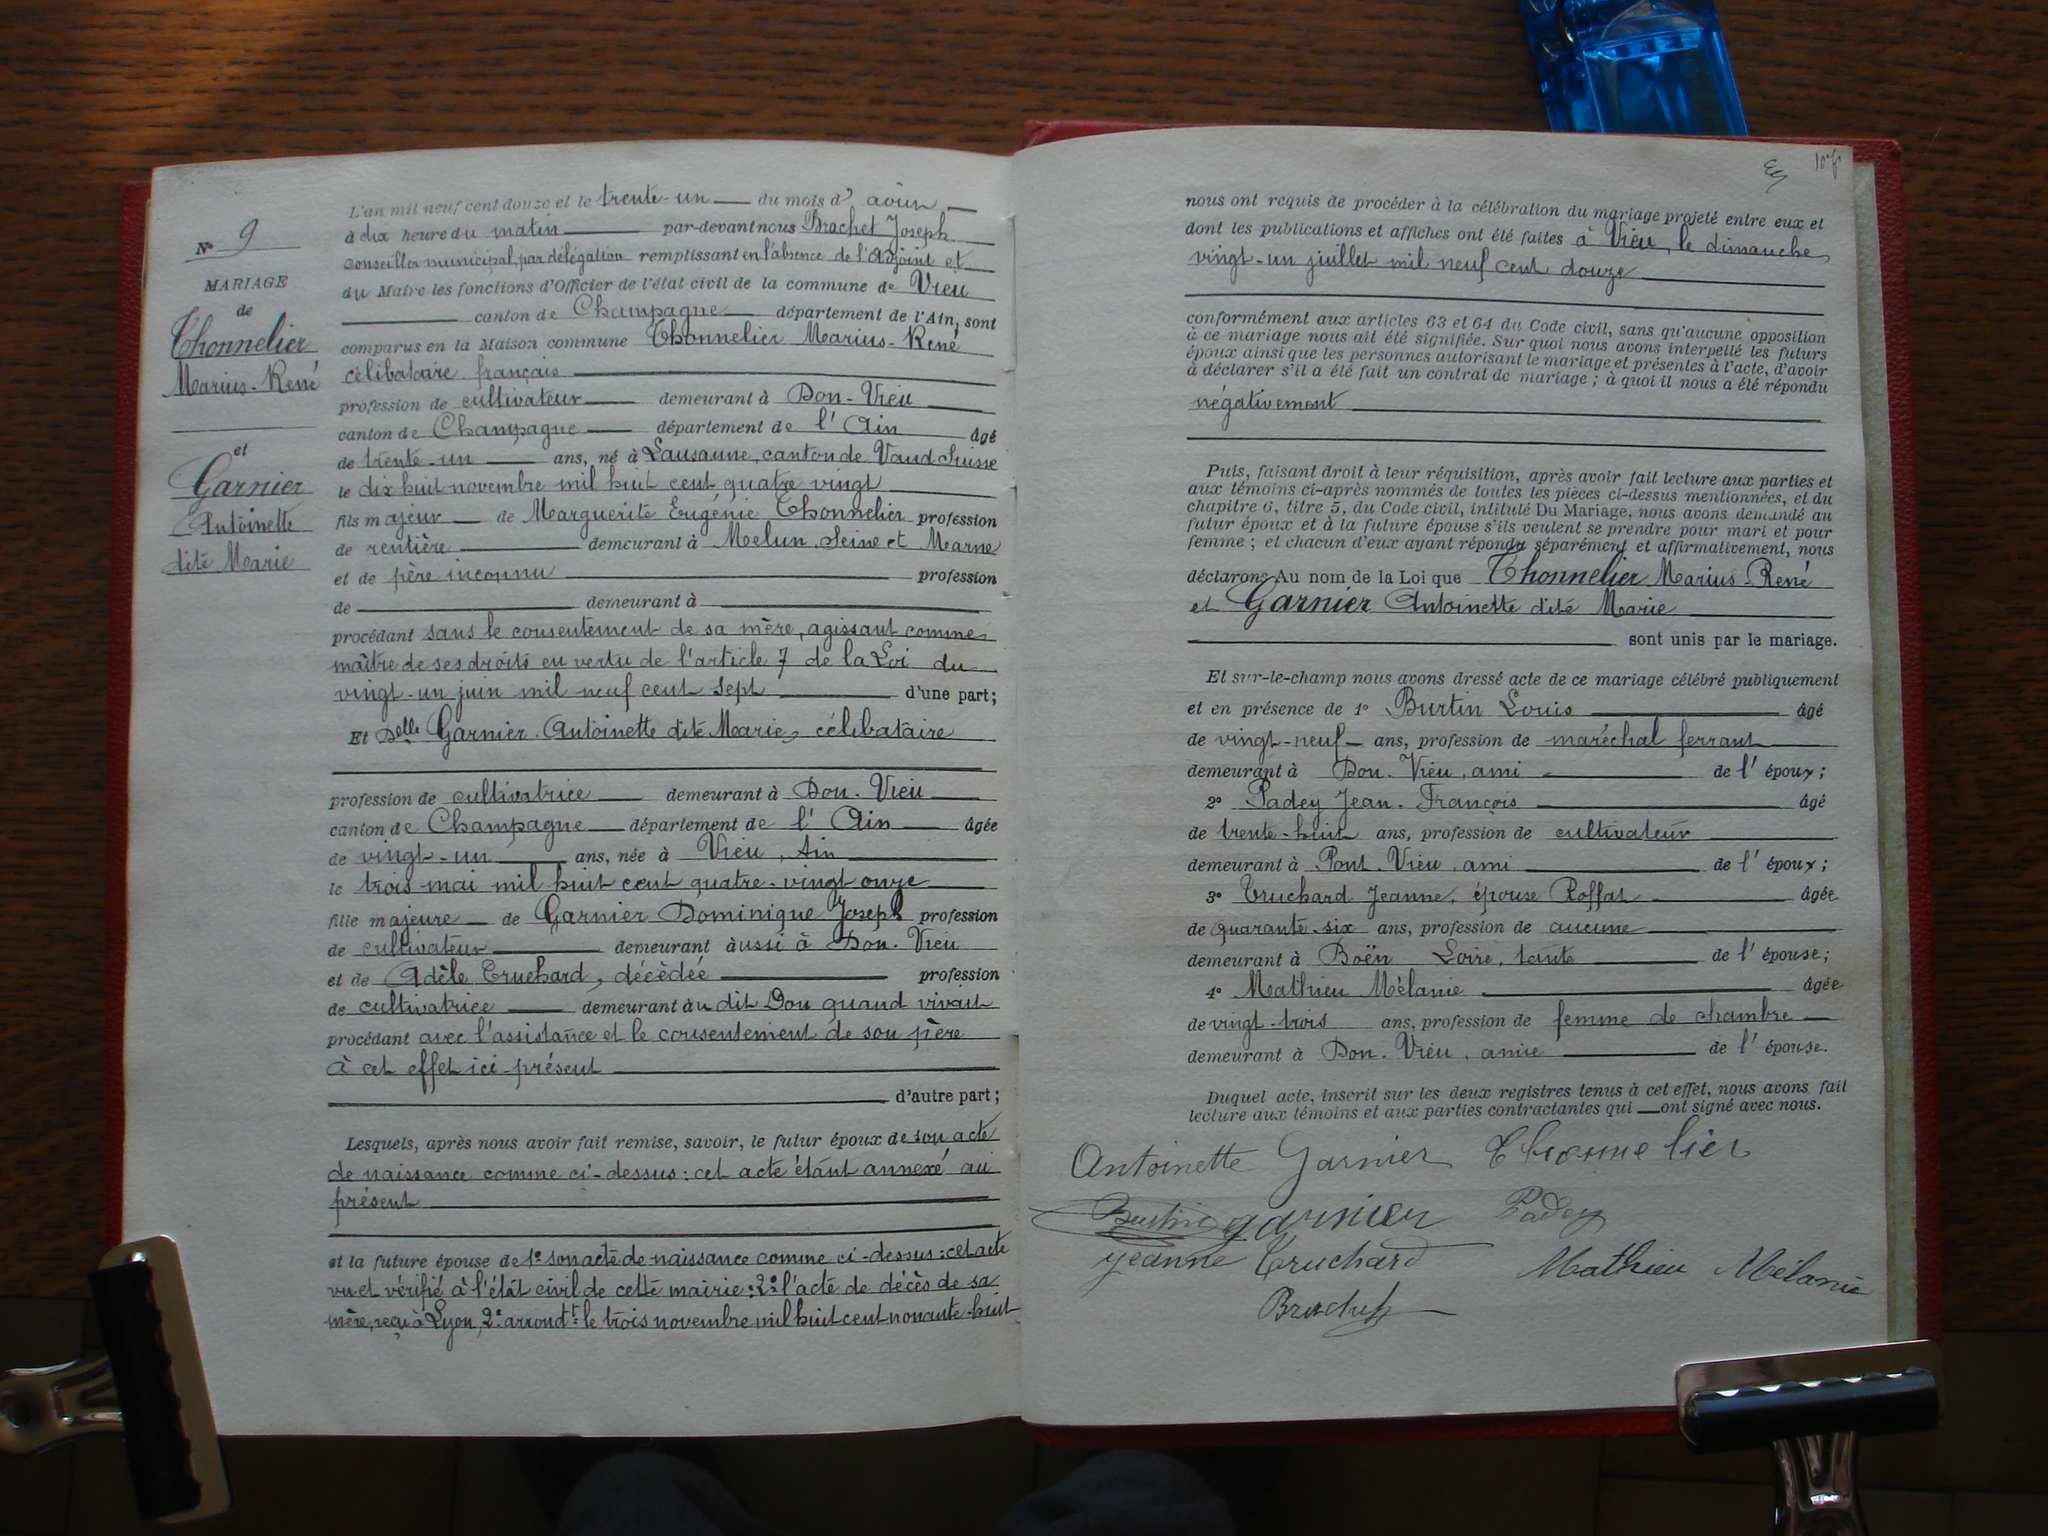 N° 9
MARIAGE
de
Thonnelier
Marius-René
et
Garnier
Antoinette
dite Marie
L'an mil neuf cent douze et le trente-un du mois d' août
à dix heure du matin par-devant nous Brachet Joseph
Conseiller municipal, par délégation remplissant en l'absence de l'Adjoint et
du Maire les fonctions d'Officier de l'état civil de la commune de Vieu
canton de Champagne département de l'Ain, sont
comparus en la Maison commune Thonnelier Marius-René
célibataire français
profession de cultivateur demeurant à Don-Vieu
canton de Champagne département de l'Ain âgé
de trente-un ans, né à Lausanne, canton de Vaud Suisse
le dix huit novembre mil huit cent quatre vingt
fils majeur de Marguerite Eugénie Thonnelier profession
de rentière demeurant à Melun, Seine et Marne
et de père inconnu profession
de demeurant à
procédant sans le consentement de sa mère, agissant comme
maître de ses droits en vertu de l'article 7 de la Loi du
vingt-un juin mil neuf cent sept d'une part;
Et Delle Garnier Antoinette dite Marie, célibataire
profession de cultivatrice demeurant à Don-Vieu
canton de Champagne département de l'Ain âgée
de vingt-un ans, née à Vieu, Ain
le trois mai mil huit cent quatre-vingt onze
fille majeure de Garnier Dominique Joseph profession
de cultivateur demeurant aussi à Don-Vieu
et de Adèle Truchard, décèdée profession
de cultivatrice demeurant au dit Don quand vivait
procédant avec l'assistance et le consentement de son père
à cet effet ici-présent
d'autre part;
Lesquels, après nous avoir fait remise, savoir, le futur époux de son acte
de naissance comme ci-dessus: cet acte étant annexé au
présent
et la future épouse de 1° son acte de naissance comme ci-dessus: cet acte
vu et vérifié à l'état civil de cette mairie: 2° l'acte de décès de sa
mère, reçu à Lyon, 2e arrondt le trois novembre mil huit cent nonante-huit
nous ont requis de procéder à la célébration du mariage projeté entre eux et
dont les publications et affiches ont été faites à Vieu, le dimanche
vingt-un juillet mil neuf cent douze
conformément aux articles 63 et 64 du Code civil, sans qu'aucune opposition
à ce mariage nous ait été signifiée. Sur quoi nous avons interpellé les futurs
époux ainsi que les personnes autorisant le mariage et présentes à l'acte, d'avoir
à déclarer s'il a été fait un contrat de mariage; à quoi il nous a été répondu
négativement
Puis, faisant droit à leur réquisition, après avoir fait lecture aux parties et
aux témoins ci-après nommés de toutes les pièces ci-dessus mentionnées, et du
chapitre 6, titre 5, du Code civil, intitulé Du Mariage, nous avons demandé au
futur époux et à la future épouse s'ils veulent se prendre pour mari et pour
femme; et chacun d'eux ayant répondu séparément et affirmativement, nous
déclarons Au nom de la Loi que Thonnelier Marius-René
et Garnier Antoinette dite Marie
sont unis par le mariage.
Et sur-le-champ nous avons dressé acte de ce mariage célébré publiquement
et en présence de 1° Burtin Louis âgé
de vingt-neuf ans, profession de maréchal ferrant
demeurant à Don-Vieu, ami de l'époux;
2° Padey Jean-François âgé
de trente-huit ans, profession de cultivateur
demeurant à Pont-Vieu, ami de l'époux;
3° Truchard Jeanne, épouse Roffat âgée
de quarante-six ans, profession de aucune
demeurant à Boën Loire, tante de l'épouse;
4° Mathieu Mélanie âgée
de vingt-trois ans, profession de femme de chambre
demeurant à Don-Vieu, amie de l'épouse.
Duquel acte, inscrit sur les deux registres tenus à cet effet, nous avons fait
lecture aux témoins et aux parties contractantes qui ont signé avec nous.
Antoinette Garnier Thonnelier
Burtin garnier Padey
jeanne Truchard Mathieu Mélanie
Brachet